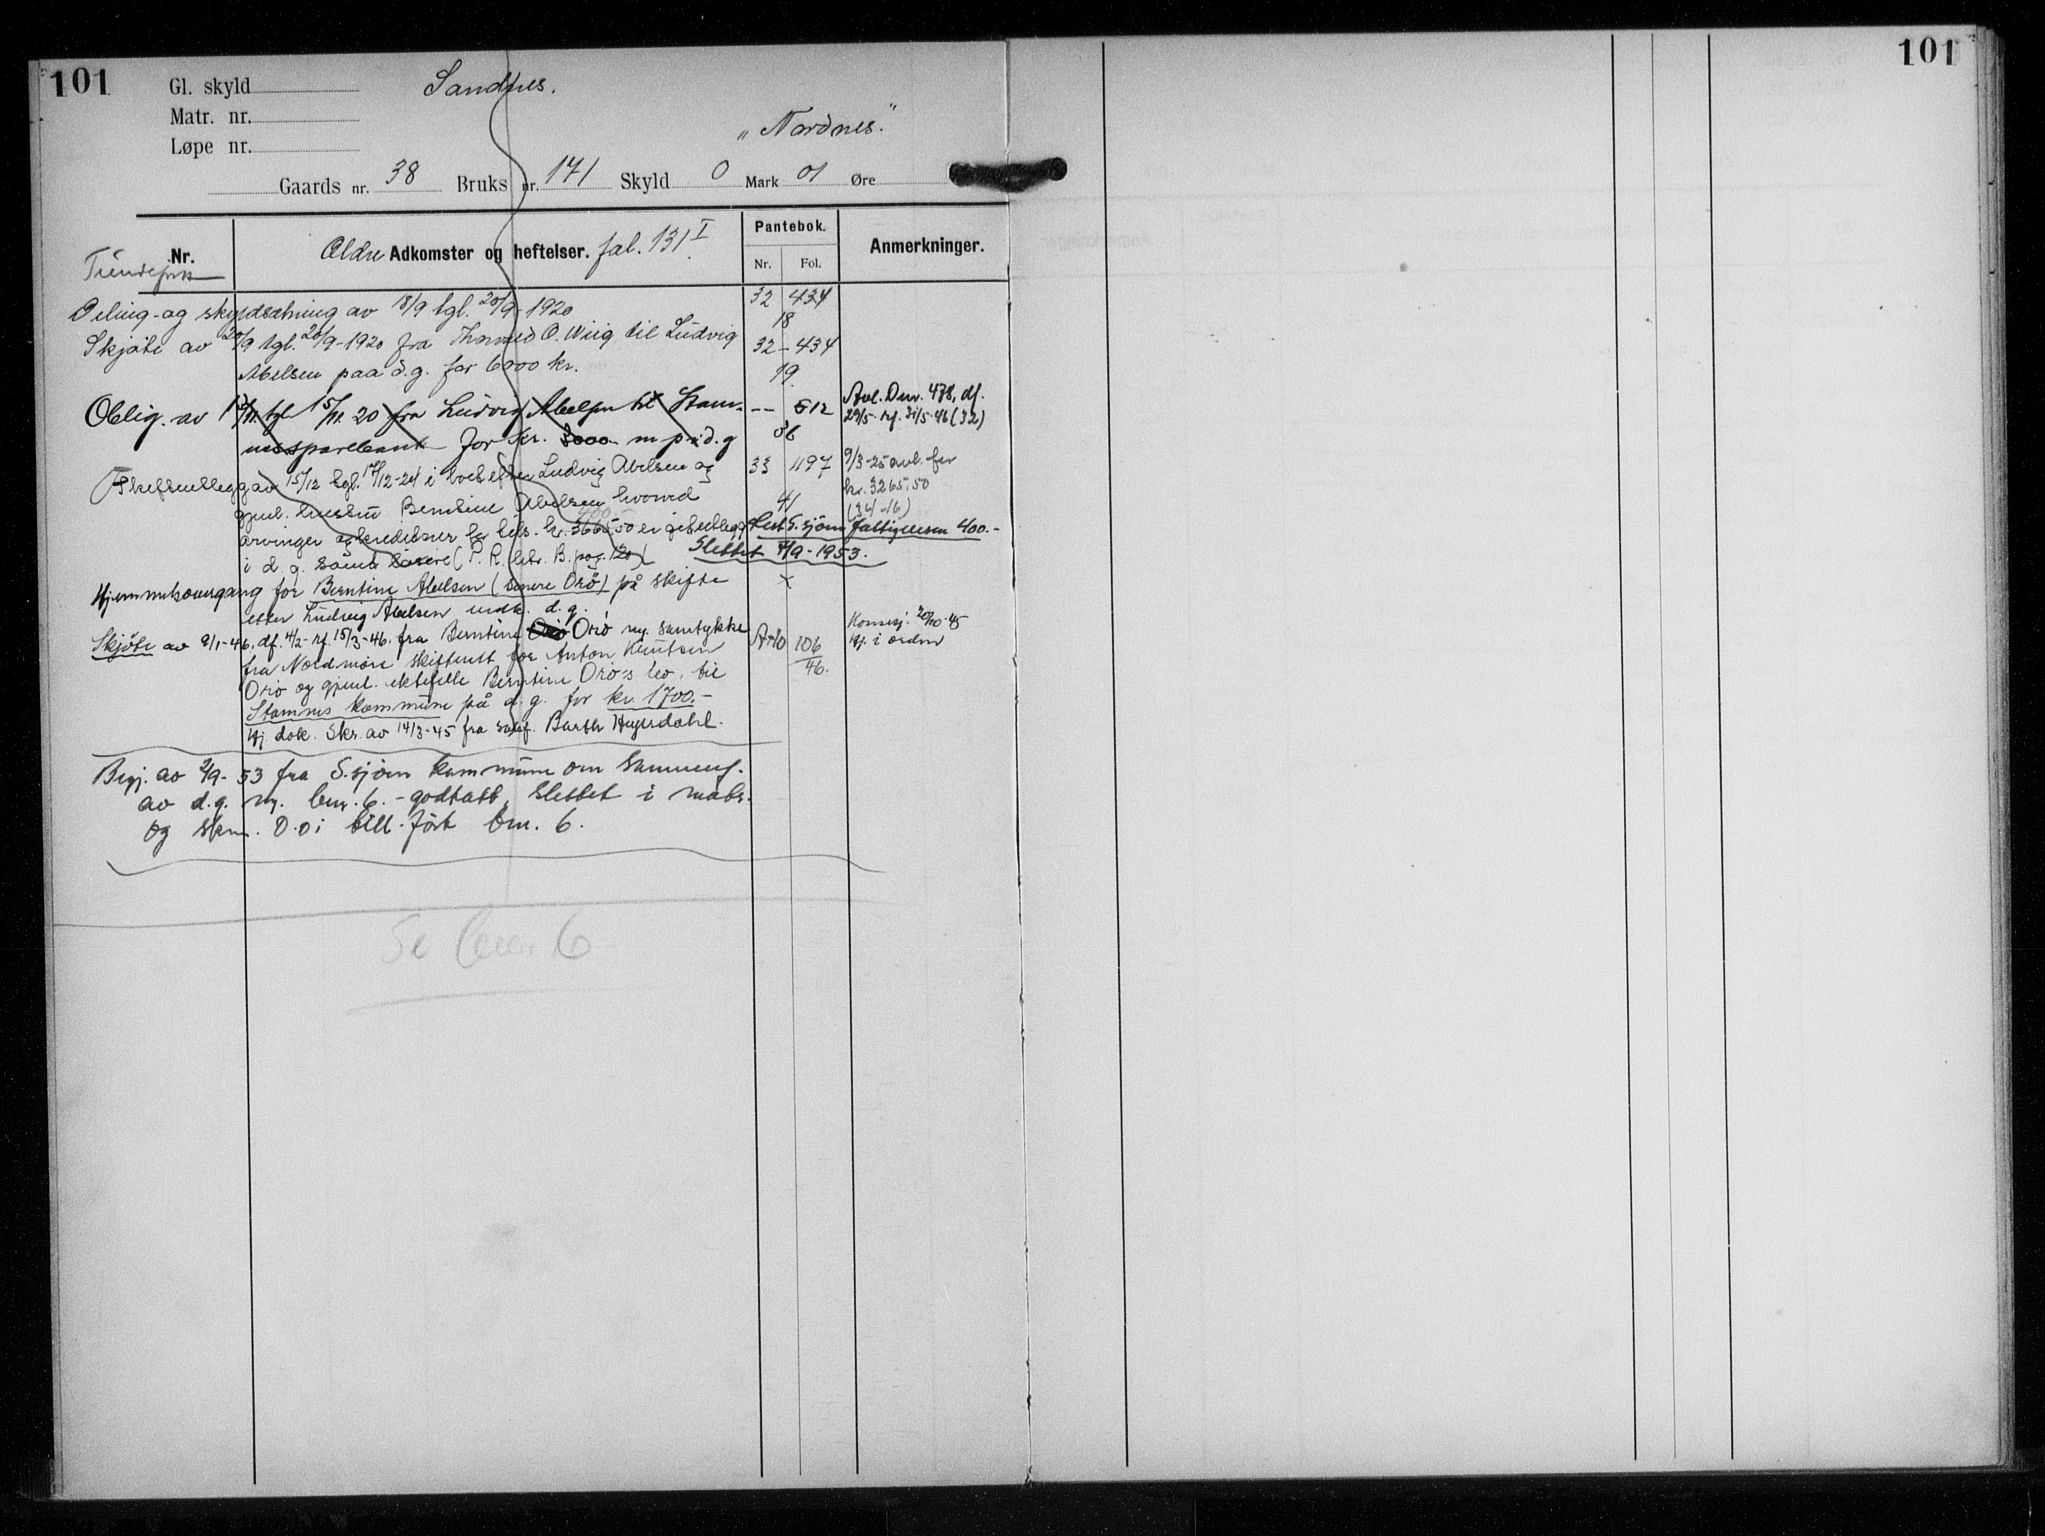 101
101
Gl. skyld Sandnes.
Matr. nr. „Nordnes."
Løpe nr.
Gaards nr. 38 Bruks nr. 141 Skyld 0 Mark 01 Øre
Nr. Ældre Adkomster og heftelser. fol. 131 I Pantebok. Anmerkninger.
Nr. Fol.
Tiendefrit
Deling- og skyldsætning av 18/9 tgl. 20/9-1920 32 434
18
Skjöte av 20/9 tgl. 20/9-1920 fra Thorvald O. Wiig til Ludvig 32 - 434
Abelsen paa d.g. for 6000 kr. 19.
Oblig. av 12/11 tgl 15/11 20 fra Ludvig Abelsen til Stam- -- 512 Avl. Dnr. 478, df.
nessparebank for kr. 8000 m p i d. g 36 29/5- rf. 31/5-46 (32)
Skifteutlegg av 15/12 tgl. 17/12-24 i boet efter Ludvig Abelsen og 33 497 9/3-25 avl. for
gjenl. hustru Berntine Abelsen hvorved 41 kr. 3265.50
arvinger og kreditorer for tils. kr. 3665.50 er gitt utlegg 400.- (34-16)
Rest S.sjöen fattigvesen 400.-
i d. g. samt lösöre (P. R. litr. B. pag. 120) Slettet 7/9-1953.
Hjemmelsovergang for Berntine Abelsen (senere Orö) på skifte x
etter Ludvig Abelsen vedk. d.g.
Skjöte av 9/1-46, df. 4/2- rf. 15/3-46. fra Berntine Orö m. samtykke A10 106/46. Konsesj. 20/10-45
fra Nordmöre skifterett for Anton Knutsen hj. i orden
Orö og gjenl. ektefelle Berntine Orö's bo, til
Stamnes kommune på d.g. for kr. 1700.-
Hj. dok. Skr. av 14/3-45 fra sakf. Barth Heyerdahl.
Begj. av 2/9-53 fra S.sjöen kommune om sammenf.
av d.g. m. bnr. 6. - godtatt, slettet i matr.
og skm. 0.01 till.fört bnr. 6.
Se bnr 6